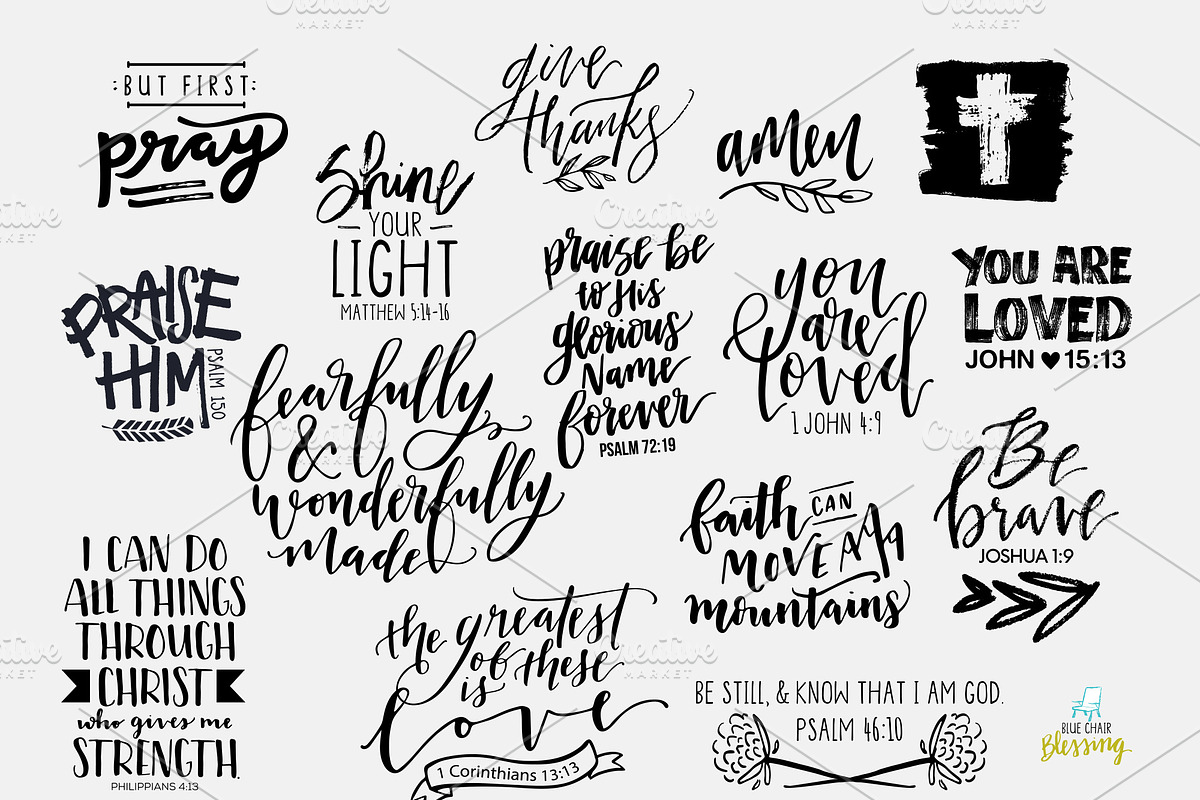 BUT FIRST
pray
give
thanks
amen
Shine
YOUR
LIGHT
MATTHEW 5:14-16
PRAISE
HIM
PSALM 150
praise be
to His
glorious
Name
forever
PSALM 72:19
you
are
loved
1 JOHN 4:9
YOU ARE
LOVED
JOHN ♥ 15:13
fearfully
&
wonderfully
made
Be
brave
JOSHUA 1:9
faith CAN
MOVE
mountains
I CAN DO
ALL THINGS
THROUGH
CHRIST
who gives me
STRENGTH.
PHILIPPIANS 4:13
the greatest
of these
is
love
1 Corinthians 13:13
BE STILL, & KNOW THAT I AM GOD.
PSALM 46:10
BLUE CHAIR
Blessing
Creative
MARKET
Creative
MARKET
Creative
MARKET
Creative
MARKET
Creative
MARKET
Creative
MARKET
Creative
MARKET
Creative
MARKET